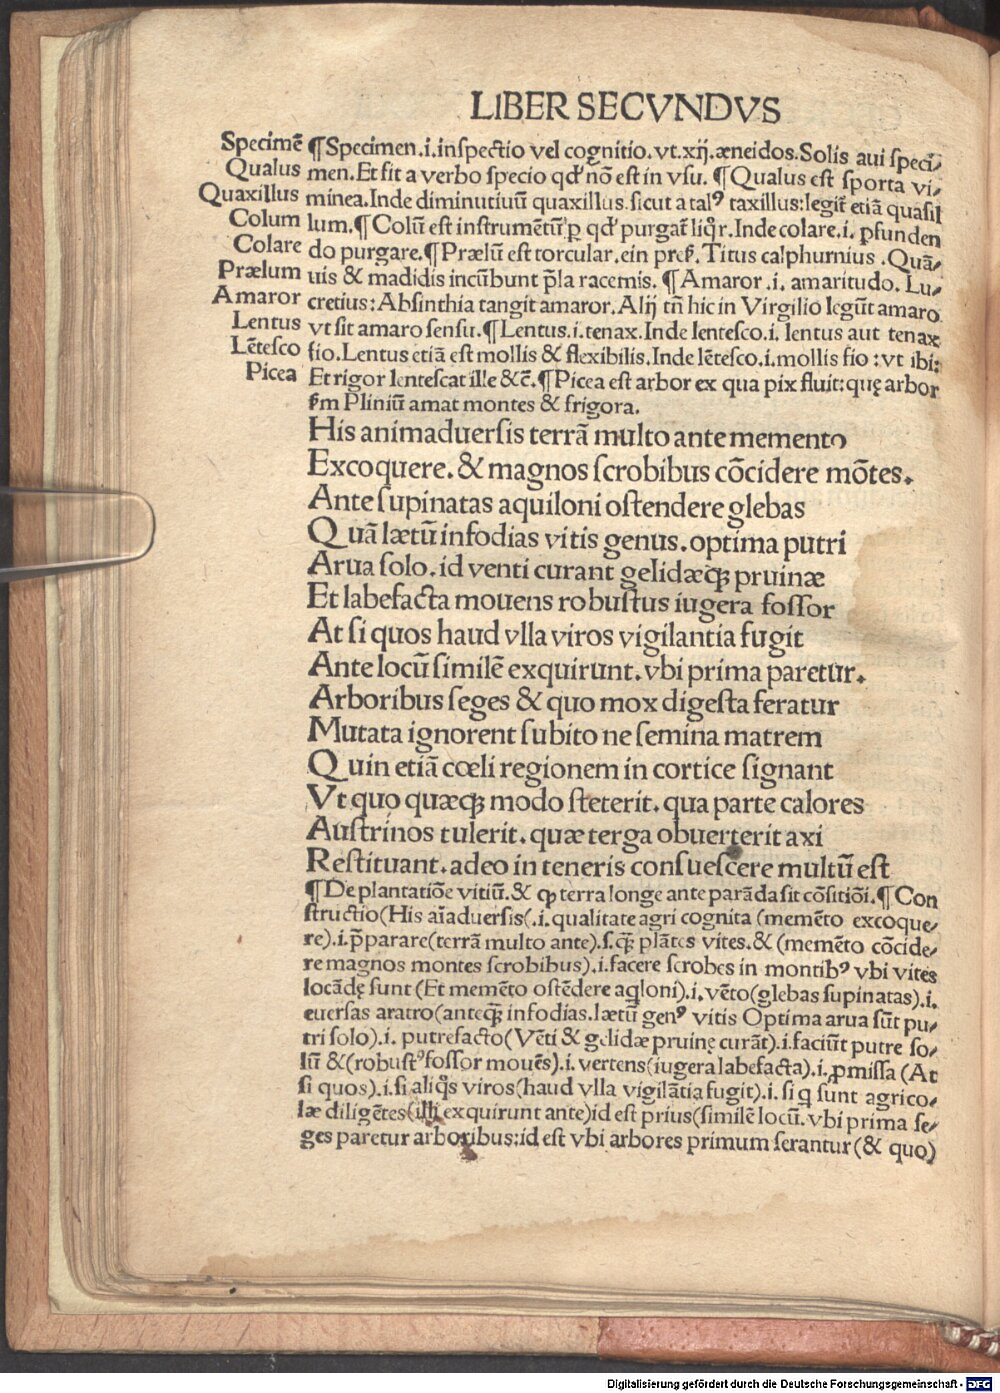 LIBER SECVNDVS
Specimē
Qualus
Quaxillus
Colum
Colare
Prælum
Amaror
Lentus
Lētesco
Picea
¶Specimen.i.inſpectio vel cognitio.vt.xij.æneidos.Solis aui ſpeci⸗
men.Et fit a verbo ſpecio qd' nō eſt in vſu. ¶Qualus eſt ſporta vi⸗
minea.Inde diminutiuū quaxillus.ſicut a talꝰ taxillus:legit̃ etiā quaſil
lum.¶Colū eſt inſtrumētū ꝑ qd' purgat̃ liq̃r.Inde colare.i. ꝓfunden
do purgare.¶Prælū eſt torcular.ein preſ. Titus calphurnius .Quā⸗
uis & madidis incūbunt p̄la racemis. ¶Amaror .i. amaritudo. Lu⸗
cretius:Abſinthia tangit amaror.Alij tñ hic in Virgilio legūt amaro
vt ſit amaro ſenſu.¶Lentus.i.tenax.Inde lenteſco.i. lentus aut tenax
fio.Lentus etiā eſt mollis & flexibilis.Inde lēteſco.i.mollis fio:vt ibi:
Et rigor lenteſcat ille &c̄.¶Picea eſt arbor ex qua pix fluit:quę arbor
ẜm Pliniū amat montes & frigora.
His animaduerſis terrā multo ante memento
Excoquere.& magnos ſcrobibus cōcidere mōtes.
Ante ſupinatas aquiloni oſtendere glebas
Quā lætū infodias vitis genus.optima putri
Arua ſolo.id venti curant gelidæqꝫ pruinæ
Et labefacta mouens robuſtus iugera foſſor
At ſi quos haud vlla viros vigilantia fugit
Ante locū ſimilē exquirunt.vbi prima paretur.
Arboribus ſeges & quo mox digeſta feratur
Mutata ignorent ſubito ne ſemina matrem
Quin etiā cœli regionem in cortice ſignant
Vt quo quæqꝫ modo ſteterit.qua parte calores
Auſtrinos tulerit.quæ terga obuerterit axi
Reſtituant.adeo in teneris conſueſcere multū eſt
¶De plantatiōe vitiū.& ꝙ terra longe ante parāda ſit cōſitiōi.¶Con
ſtructio(His aīaduerſis(.i.qualitate agri cognita (memēto excoque⸗
re).i.p̄parare(terrā multo ante).ſ.qꝫ̄ plātes vites.&(memēto cōcide⸗
re magnos montes ſcrobibus).i.facere ſcrobes in montibꝰ vbi vites
locādę ſunt (Et memēto oſtēdere aq̇loni).i.vēto(glebas ſupinatas).i.
euerſas aratro(anteqꝫ̄ infodias.lætū genꝰ vitis Optima arua ſūt pu⸗
tri ſolo).i. putrefacto(Vēti & gelidæ pruinę curāt).i.faciūt putre ſo⸗
lū &(robuſtꝰ foſſor mouēs).i. vertens(iugera labefacta).i.ꝓmiſſa (At
ſi quos).i.ſi aliq̇s viros(haud vlla vigilātia fugit).i.ſi q̇ ſunt agrico⸗
læ diligētes(illi exquirunt ante)id eſt prius(ſimilē locū.vbi prima ſe⸗
ges paretur arboribus:id eſt vbi arbores primum ſerantur(& quo)
Digitalisierung gefördert durch die Deutsche Forschungsgemeinschaft - DFG